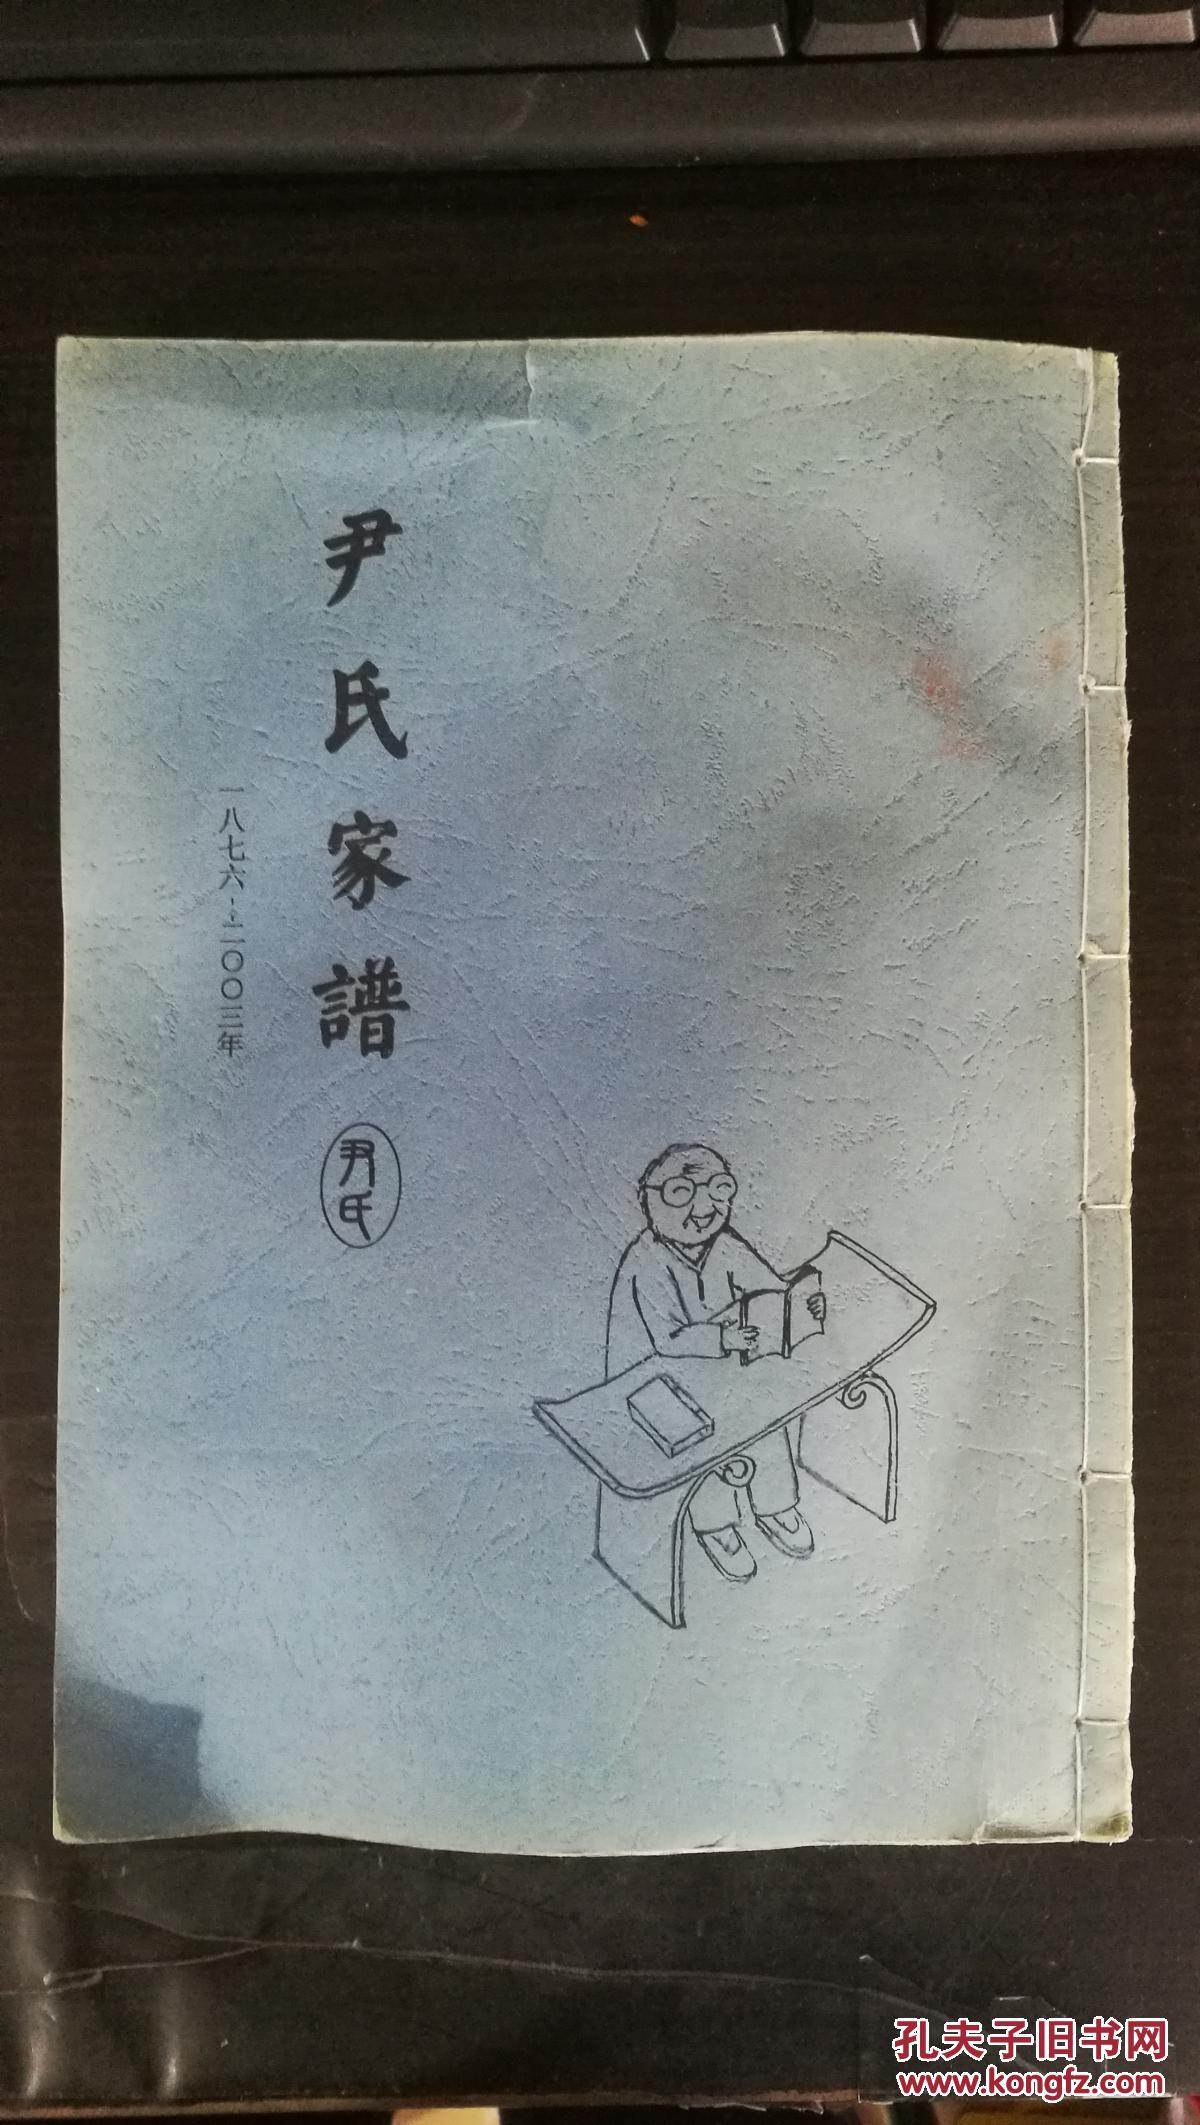 尹氏家譜
尹氏
一八七六--二〇〇三年
孔夫子旧书网
www.kongfz.com